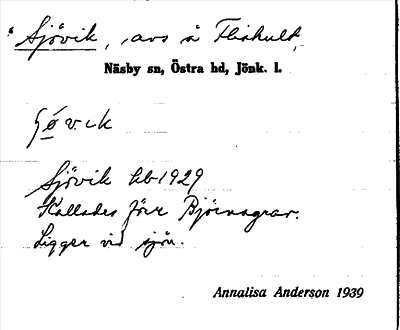 Sjövik, avs å Fliahult,
Näsby sn, Östra hd, Jönk. l.
Sjövik hb 1929
Kallades förr Björnagrav.
Ligger vid sjön.
Annalisa Anderson 1939